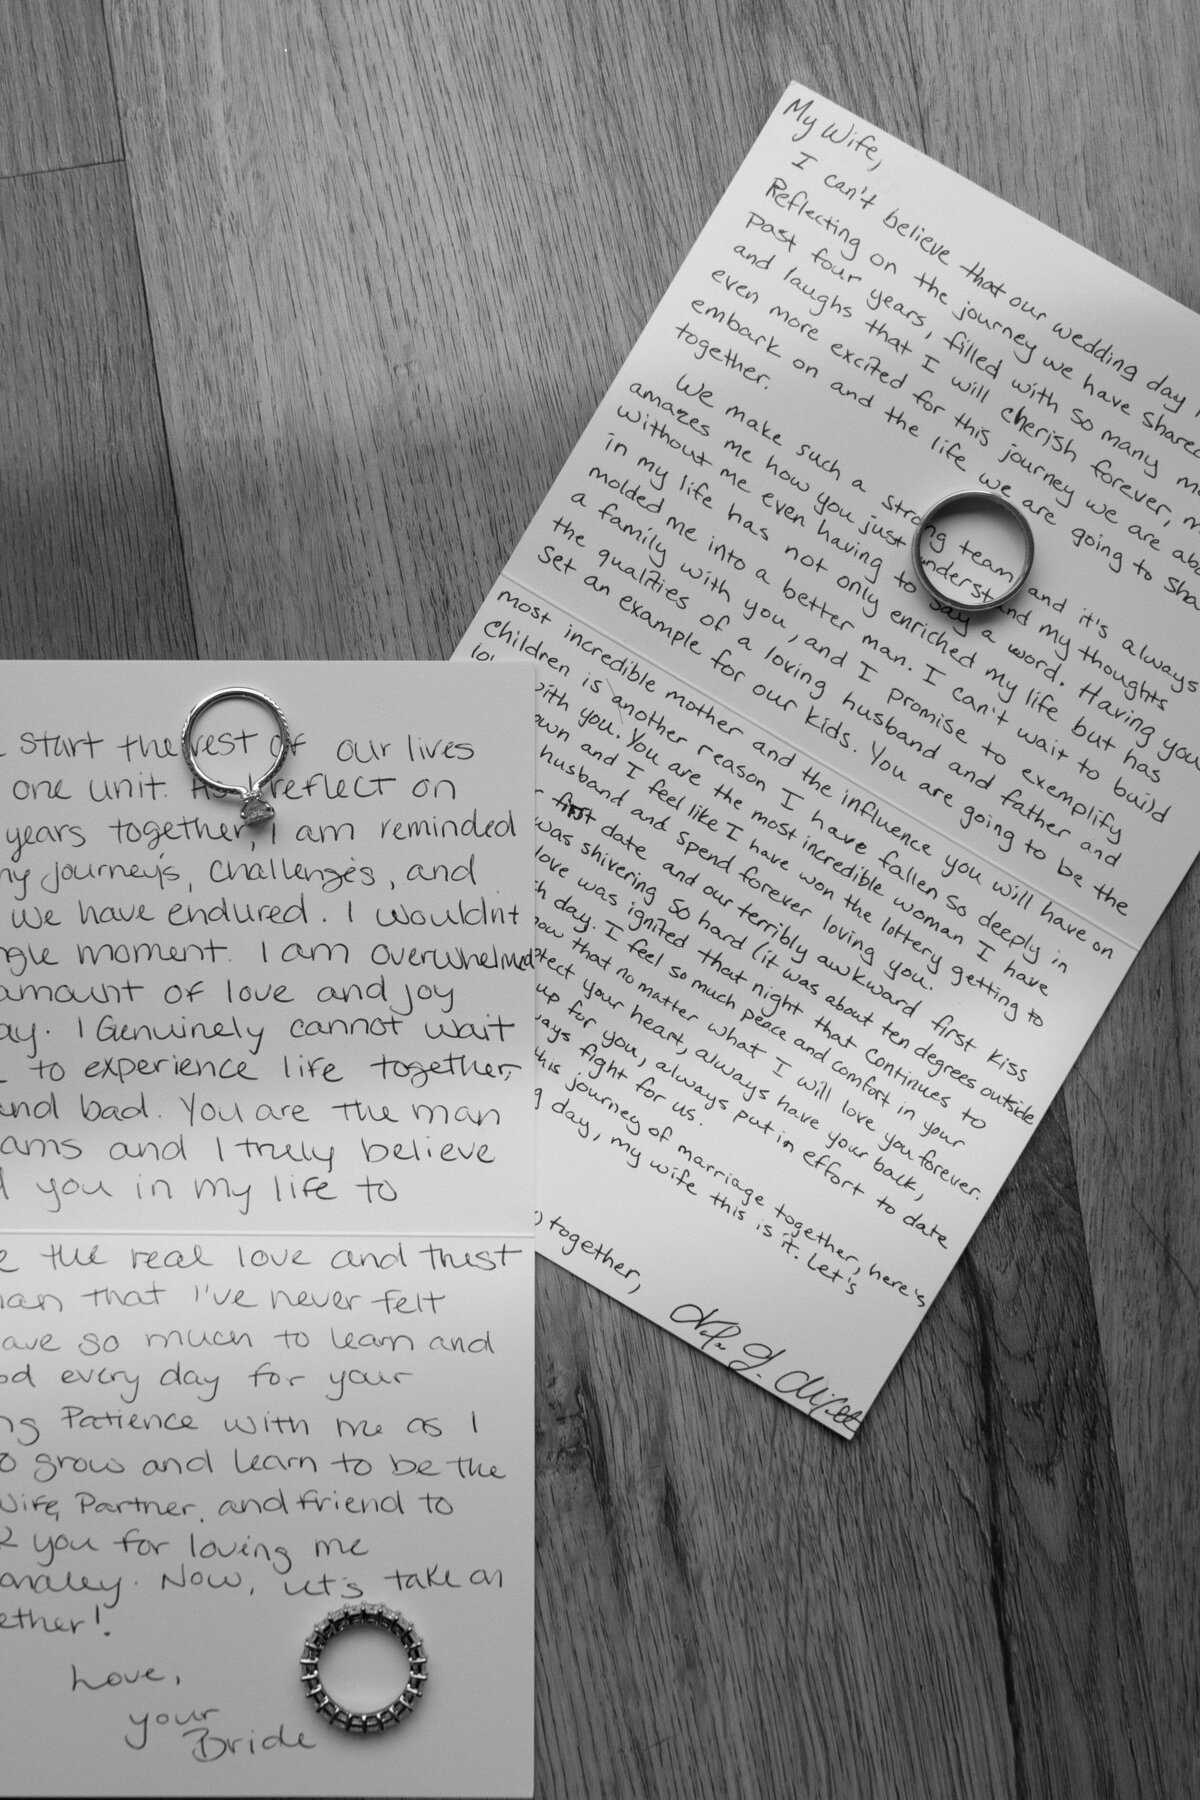 My Wife,
I can't believe that our wedding day
Reflecting on the journey we have shared
past four years, filled with so many
and laughs that I will cherish forever,
even more excited for this journey we are
embark on and the life we are going to
together.
We make such a strong team and it's always
amazes me how you just understand my thoughts
without me even having to say a word. Having you
in my life has not only enriched my life but has
molded me into a better man. I can't wait to build
a family with you, and I promise to exemplify
the qualities of a loving husband and father and
set an example for our kids. You are going to be the
most incredible mother and the influence you will have on
children is another reason I have fallen so deeply in
with you. You are the most incredible woman I have
and I feel like I have won the lottery getting to
husband and spend forever loving you.
first date and our terribly awkward first kiss
was shivering so hard (it was about ten degrees outside
love was ignited that night that continues to
day. I feel so much peace and comfort in your
that no matter what I will love you forever.
your heart, always have your back,
up for you, always put in effort to date
fight for us.
this journey of marriage together, here's
day, my wife this is it. Let's
together,
start the rest of our lives
one unit. As I reflect on
years together, I am reminded
journey's, challenges, and
we have endured. I wouldn't
moment. I am overwhelmed
amount of love and joy
I Genuinely cannot wait
to experience life together,
and bad. You are the man
and I truly believe
you in my life to
the real love and trust
that I've never felt
so much to learn and
every day for your
Patience with me as I
grow and learn to be the
Wife, Partner, and friend to
you for loving me
Now, let's take on
Love,
your
Bride